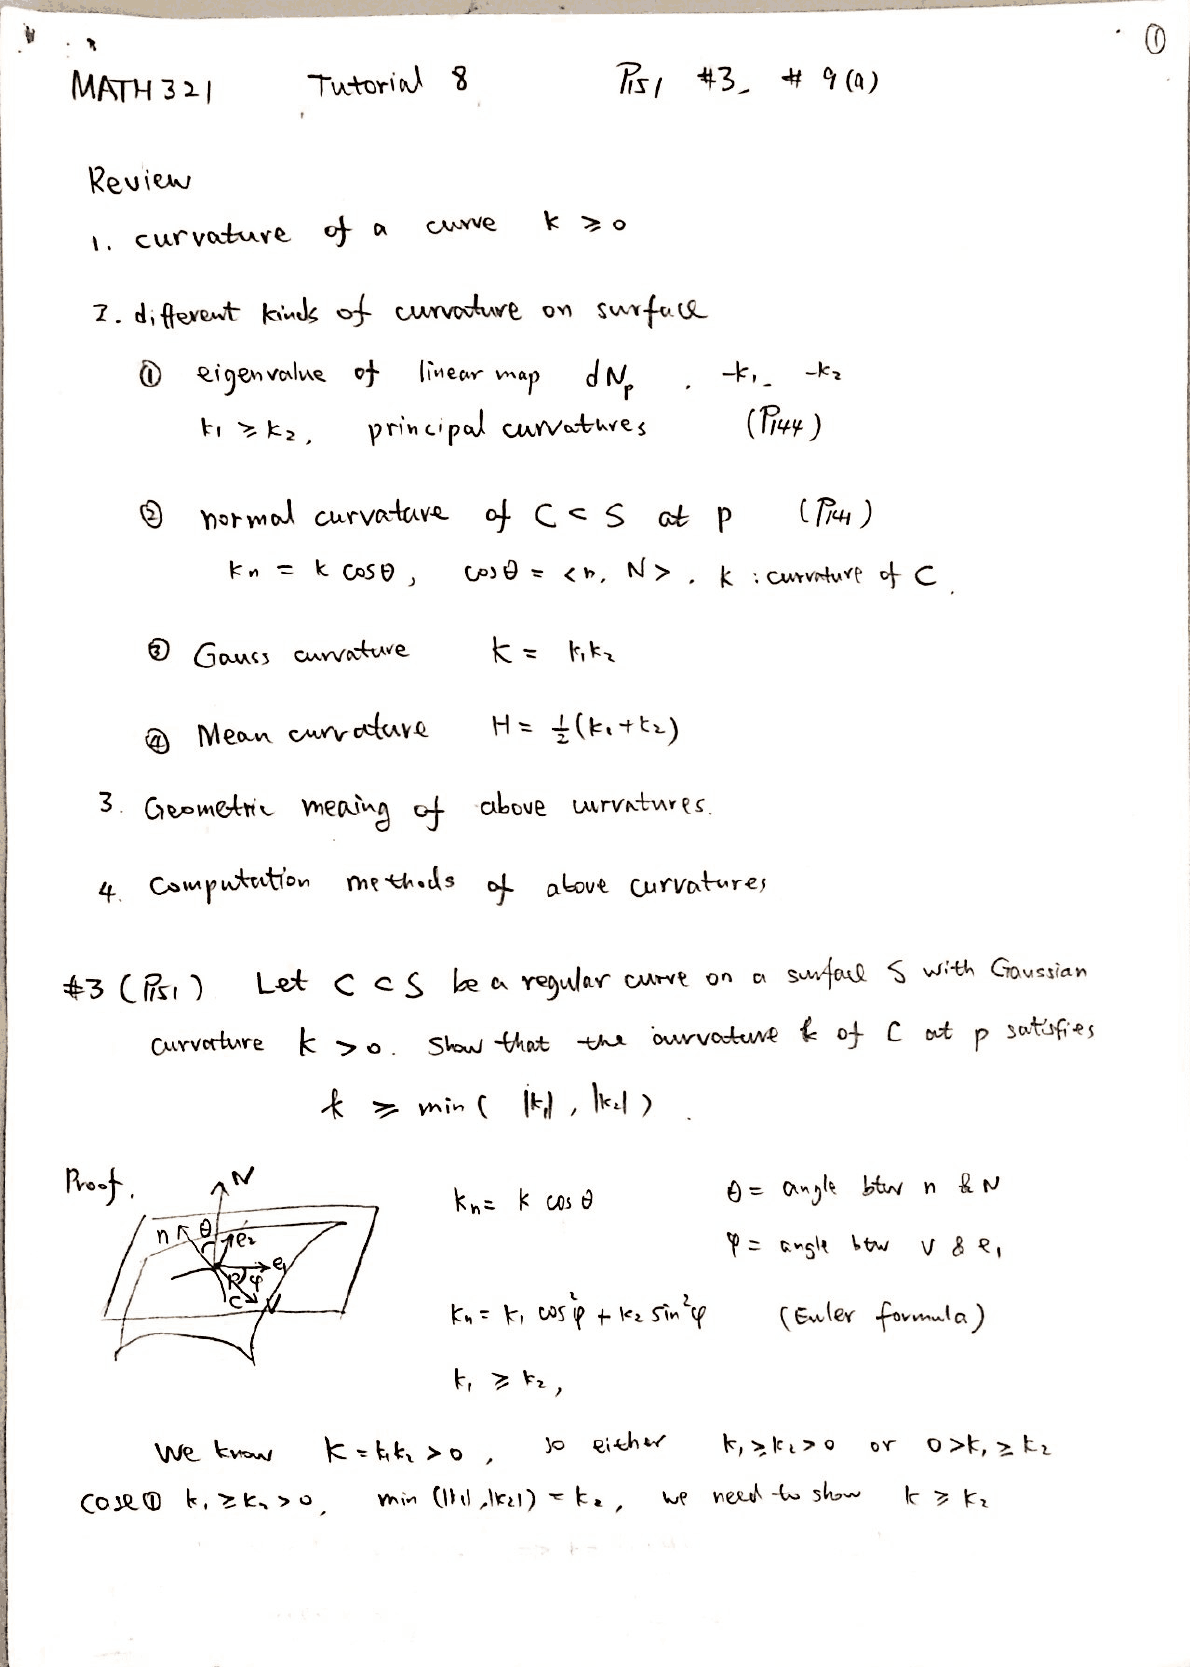 ①
MATH 321 Tutorial 8 P151 #3, # 9 (a)
Review
1. curvature of a curve k ≥ 0
2. different kinds of curvature on surface
① eigenvalue of linear map dNp , -k1, -k2
k1 ≥ k2, principal curvatures (P144)
② normal curvature of C ⊂ S at p (P141)
kn = k cosθ, cosθ = <n, N>, k : curvature of C.
③ Gauss curvature K = k1k2
④ Mean curvature H = ½(k1+k2)
3. Geometric meaing of above curvatures.
4. Computation methods of above curvatures
#3 (P151) Let C ⊂ S be a regular curve on a surface S with Gaussian
curvature K > 0. Show that the curvature k of C at p satisfies
k ≥ min ( |k1|, |k2| ).
Proof.
N
n θ e2
e1
p φ
C V
kn = k cosθ θ = angle btw n & N
φ = angle btw v & e1
kn = k1 cos²φ + k2 sin²φ (Euler formula)
k1 ≥ k2,
We know K = k1k2 > 0, so either k1 ≥ k2 > 0 or 0 > k1 ≥ k2
Case ① k1 ≥ k2 > 0, min (|k1|, |k2|) = k2, we need to show k ≥ k2